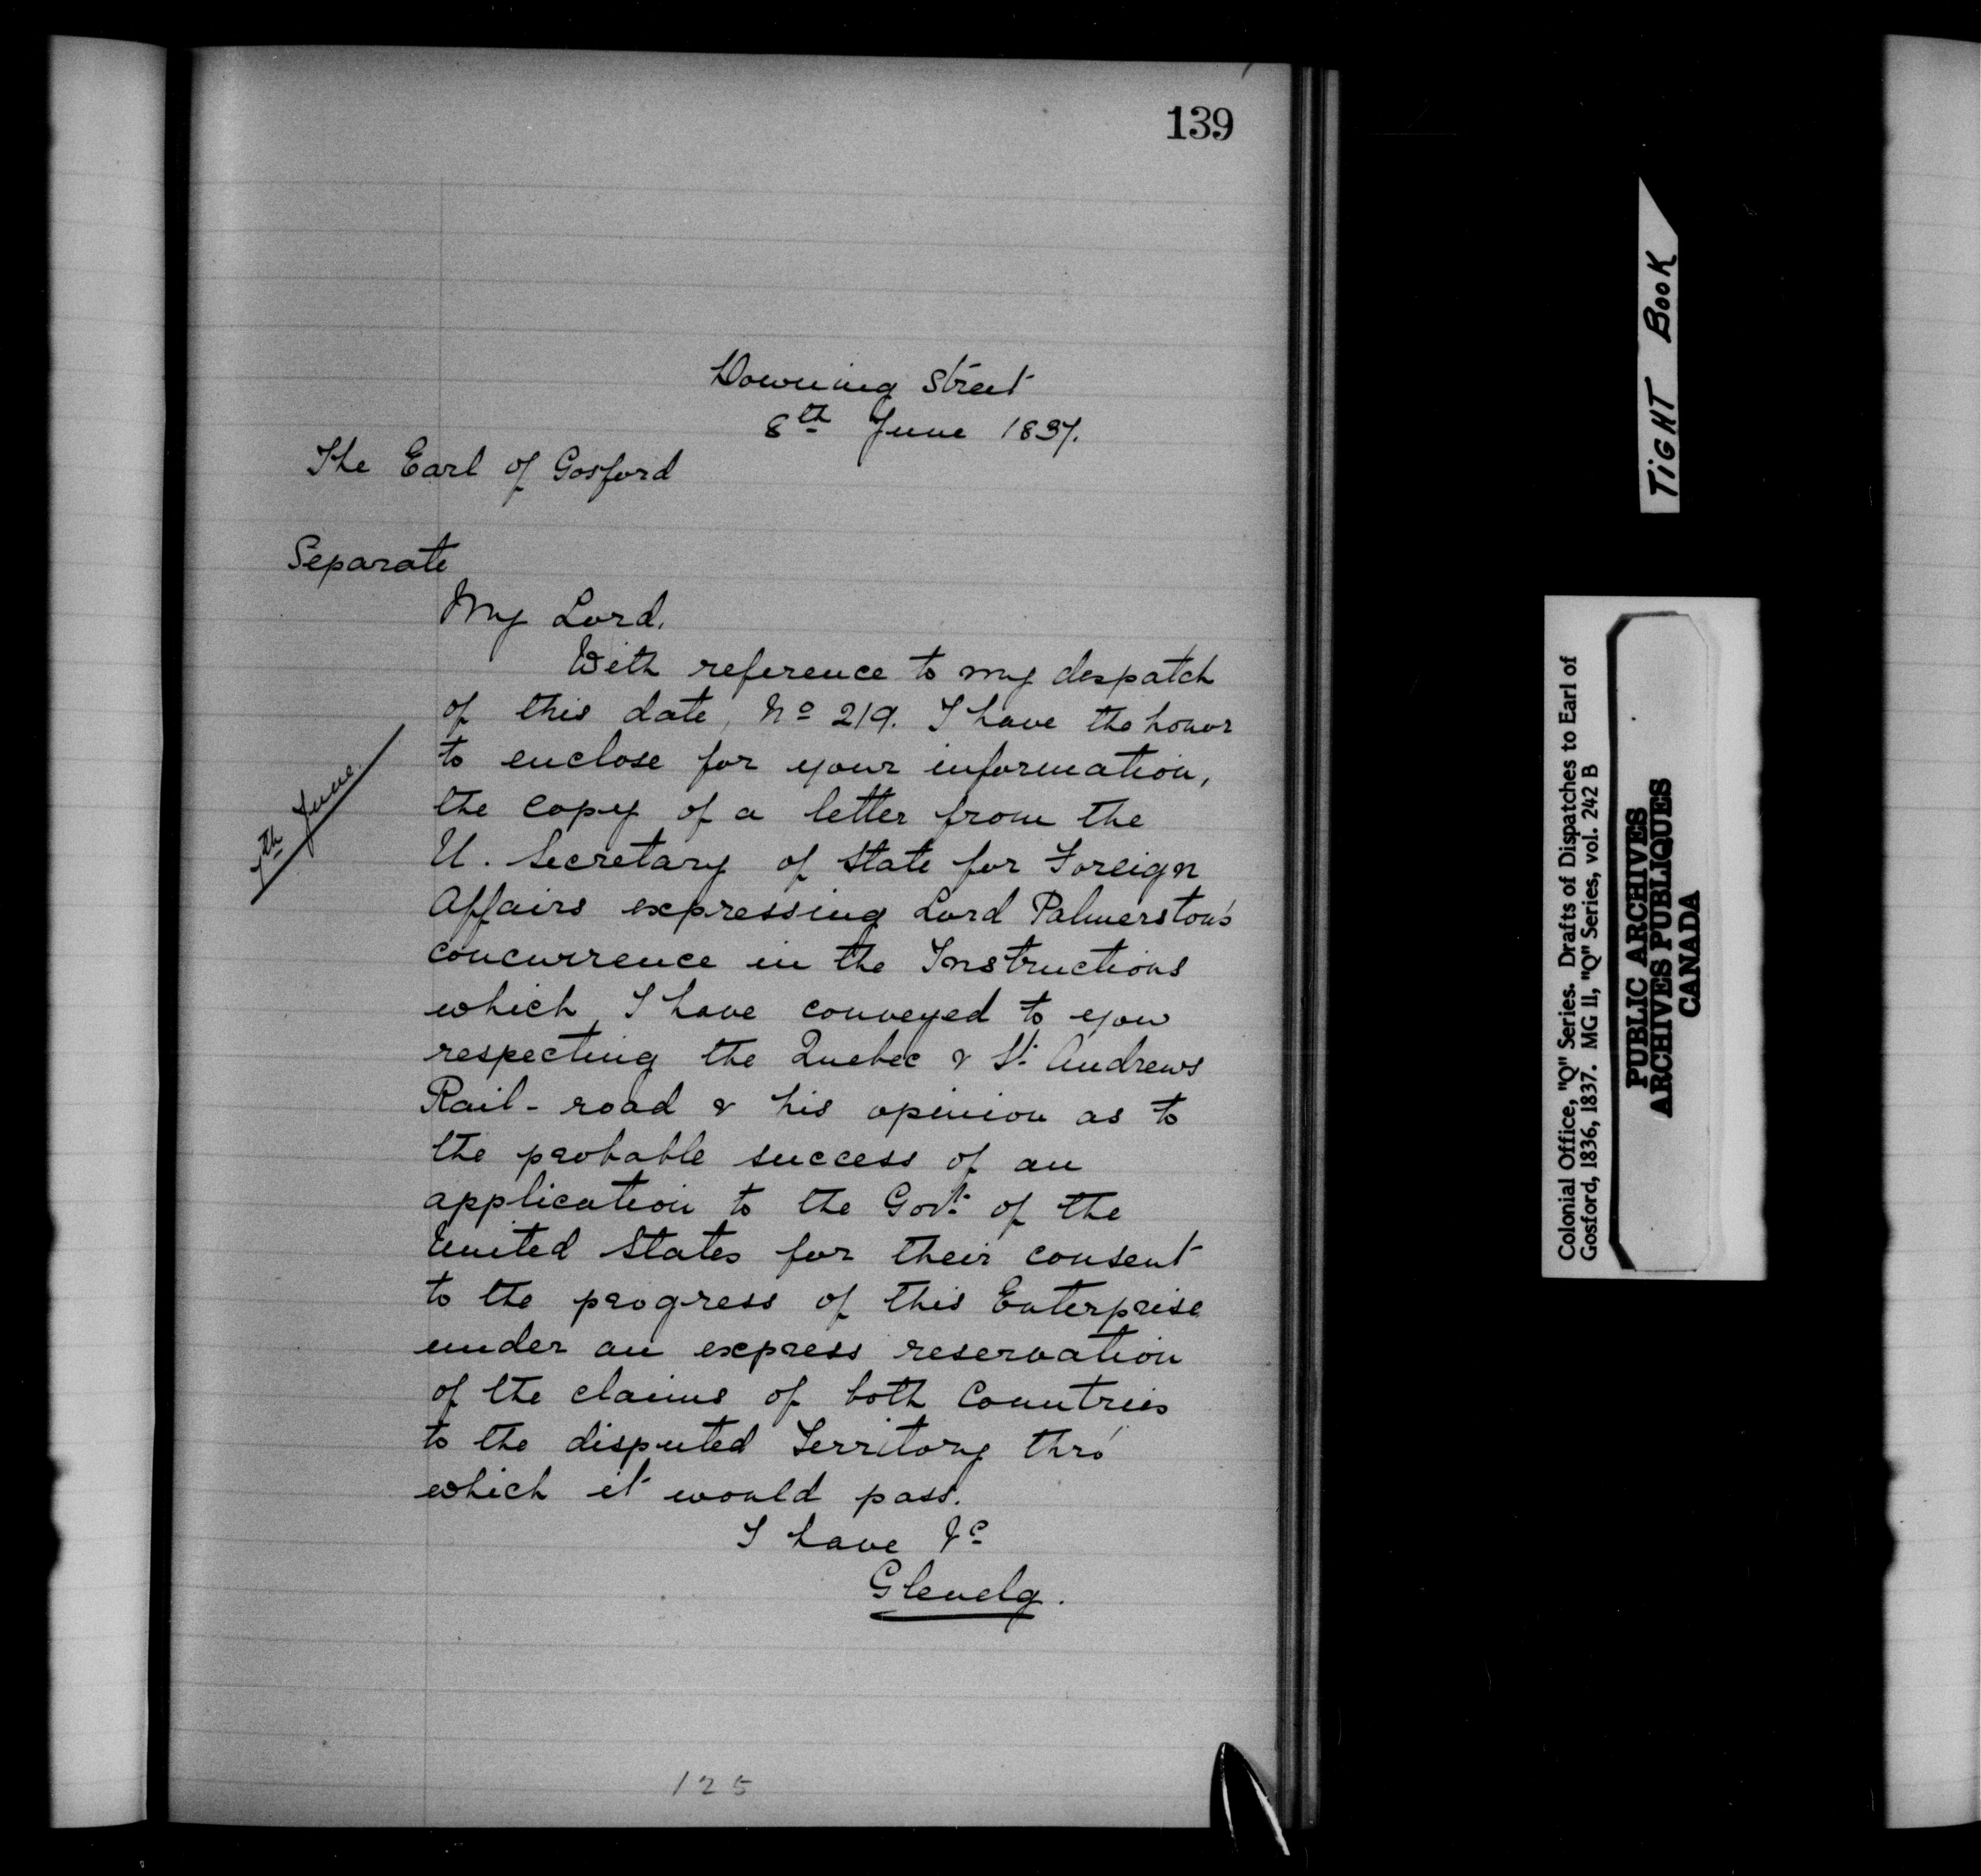 139
Downing Street
8th June 1837.
The Earl of Gosford
Separate
My Lord.
With reference to my despatch
of this date, No 219. I have the honor
to enclose for your information,
7th June.
the copy of a letter from the
U. Secretary of State for Foreign
Affairs expressing Lord Palmerston's
concurrence in the Instructions
which I have conveyed to you
respecting the Quebec & St. Andrews
Rail-road & his opinion as to
the probable success of an
application to the Govt. of the
United States for their consent
to the progress of this Enterprise
under an express reservation
of the claims of both Countries
to the disputed Territory thro'
which it would pass.
I have &c
Glenelg.
125
TIGHT BOOK
Colonial Office, "Q" Series. Drafts of Dispatches to Earl of
Gosford, 1836, 1837. MG 11, "Q" Series, vol. 242 B
PUBLIC ARCHIVES
ARCHIVES PUBLIQUES
CANADA